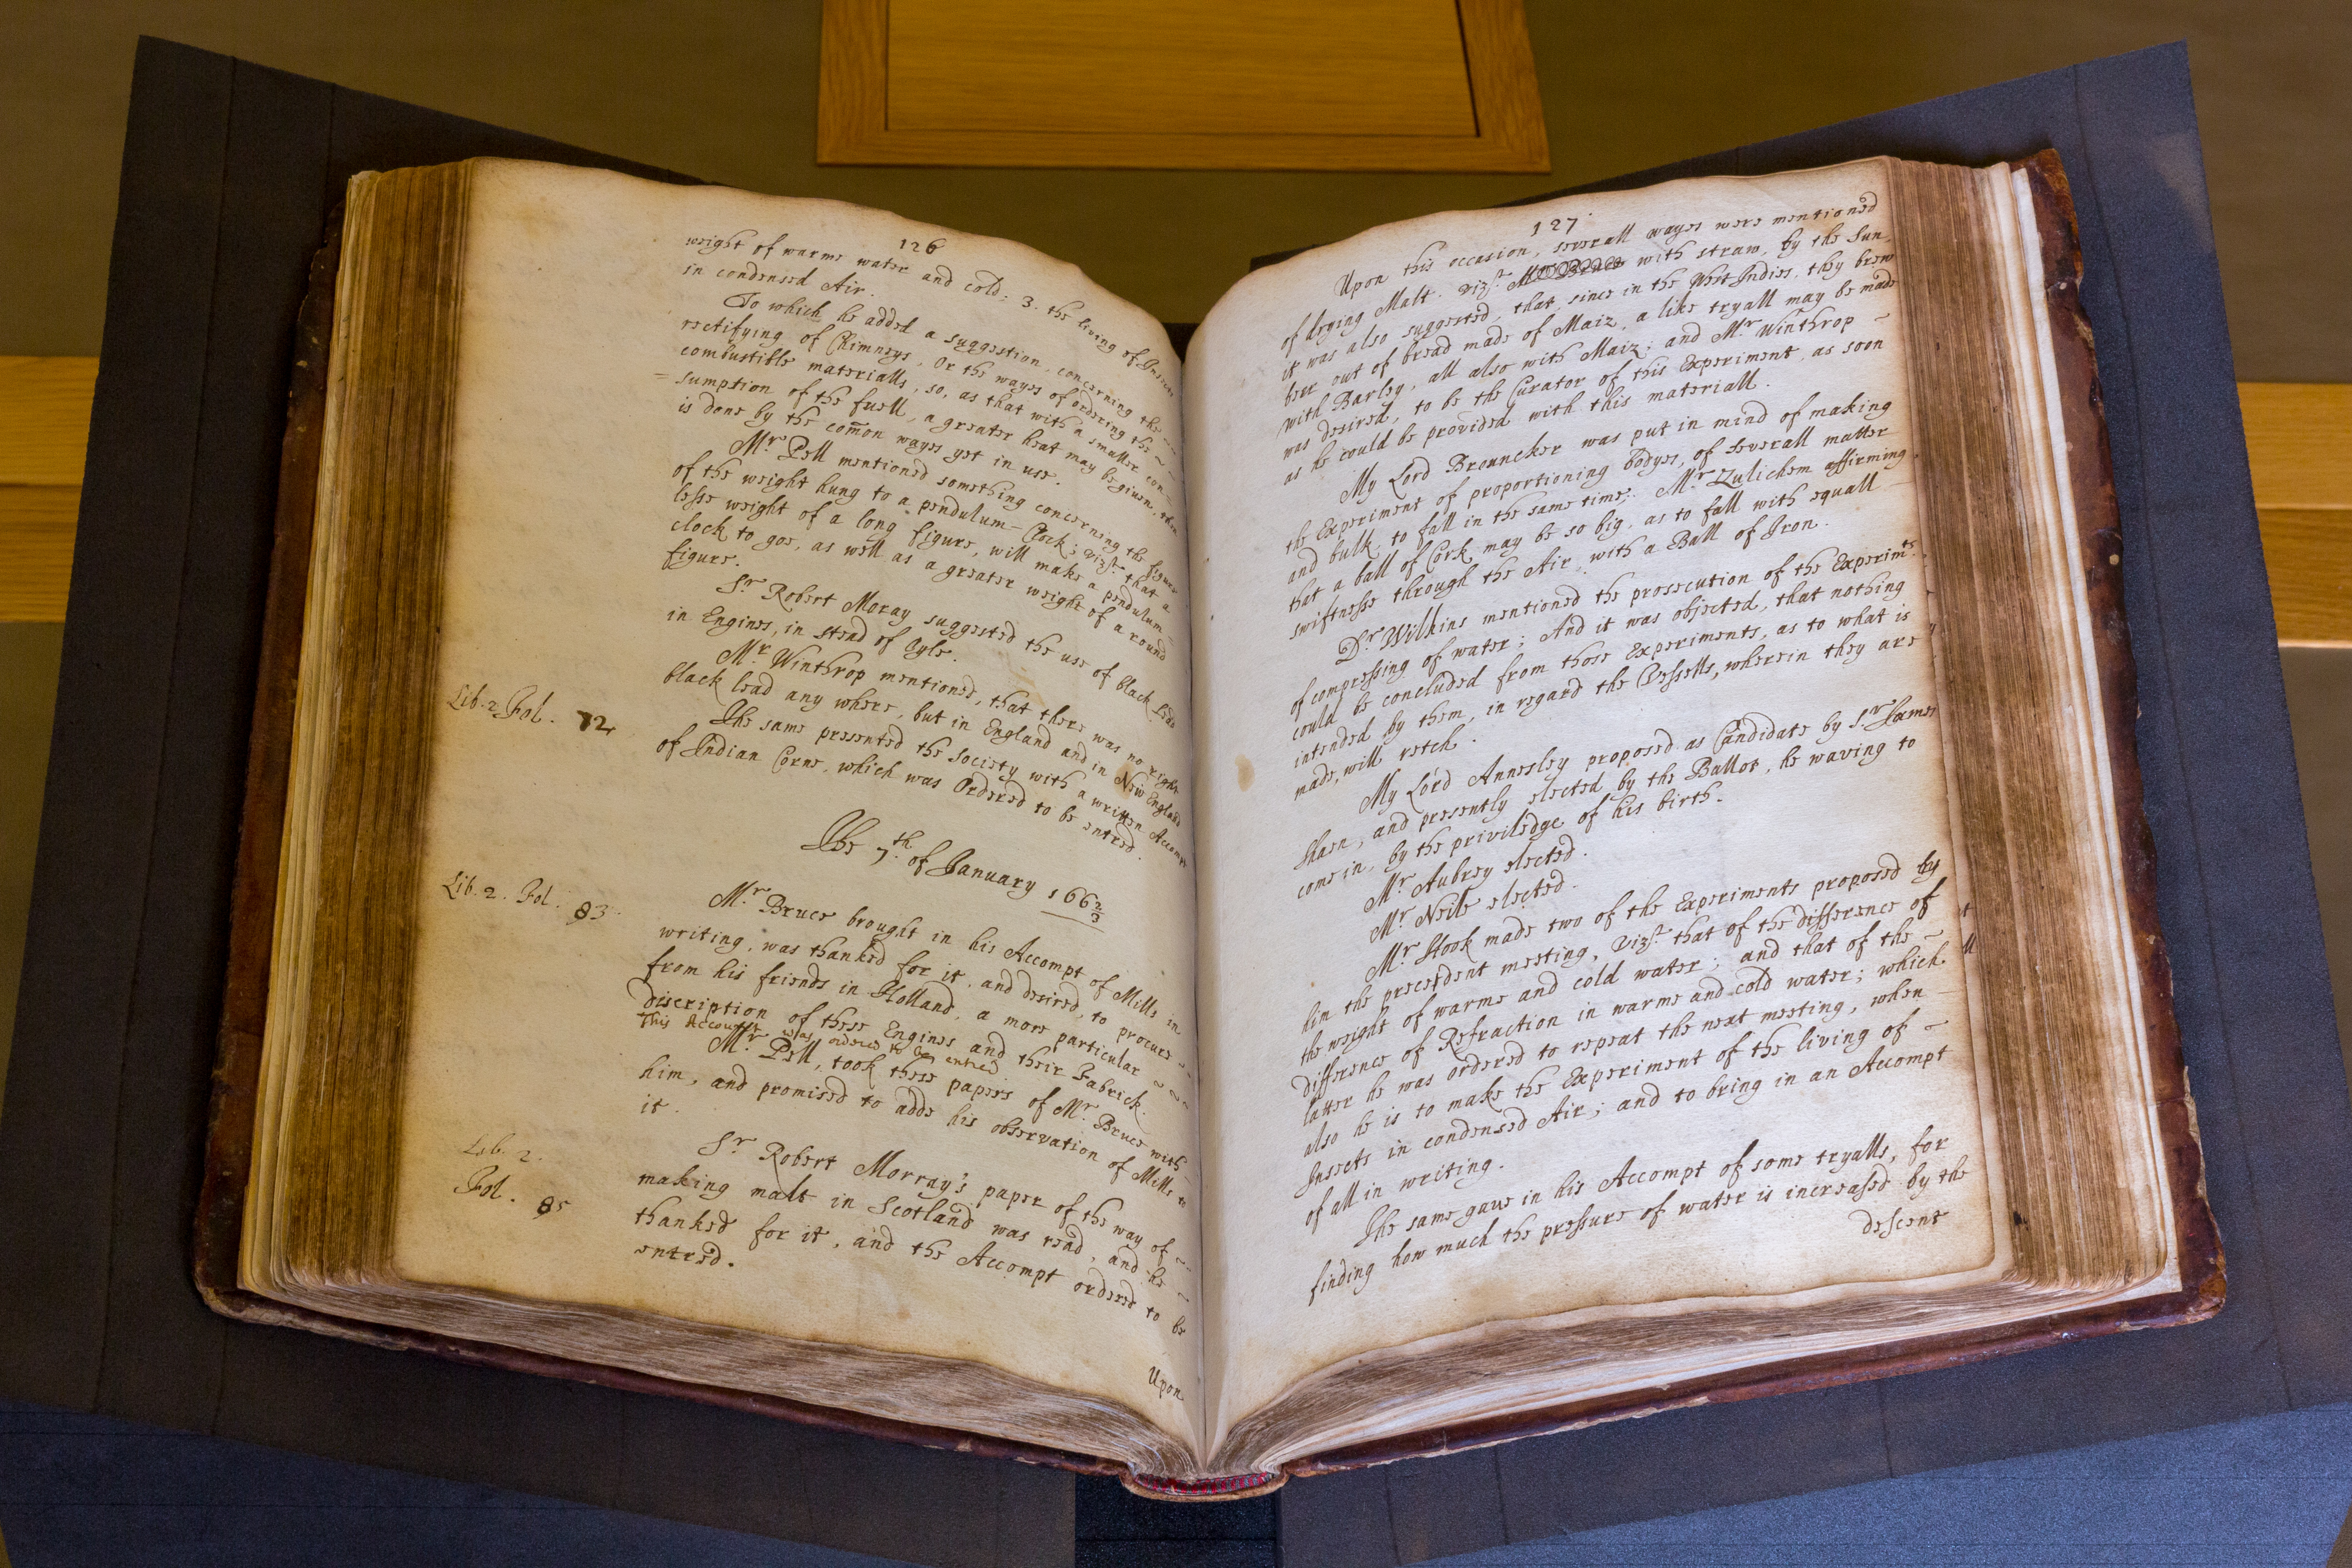 126
weight of warme water and cold; 3. the living of Insects
in condensed Air.
To which he added a suggestion, concerning the
rectifying of Chimneys, Or the wayes of ordering the
combustible materialls, so, as that with a smaller con-
=sumption of the fuell, a greater heat may be given, then
is done by the com̄on wayes yet in use.
Mr. Pell mentioned something concerning the figure
of the weight hung to a pendulum-Clock; vizt. that a
lesse weight of a long figure, will make a pendulum-
clock to goe, as well as a greater weight of a round
figure.
Sr. Robert Moray suggested the use of black lead
in Engines, in stead of Oyle.
Mr. Winthrop mentioned, that there was no right
black lead any where, but in England and in New England
Lib. 2. Fol. 72
The same presented the Society with a written Accompt
of Indian Corne, which was Ordered to be entred.
The 7th. of January 166 2/3
Lib. 2. Fol. 83
Mr. Bruce brought in his Accompt of Mills in
writing, was thanked for it, and desired, to procure
from his friends in Holland, a more particular
discription of these Engines and their Fabrick.
This Account was ordered to be entred
Mr. Pell, took these papers of Mr. Bruce with
him, and promised to adde his observation of Mills to
it.
Lib. 2.
Fol. 85
Sr. Robert Morray's paper of the way of
making malt in Scotland was read, and he
thanked for it, and the Accompt ordered to be
entred.
Upon
127
Upon this occasion, severall wayes were mentioned
of drying Malt. vizt. with straw, by the Sun.
it was also suggested, that, since in the West Indies, they brew
beer out of bread made of Maiz, a like tryall may be made
with Barley, all also with Maiz; and Mr. Winthrop
was desired, to be the Curator of this Experiment, as soon
as he could be provided with this materiall.
My Lord Brouncker was put in mind of making
the Experiment of proportioning bodyes, of severall matter
and bulk, to fall in the same time; Mr. Zulichem affirming
that a ball of Cork may be so big, as to fall with equall
swiftnesse through the Air, with a Ball of Iron.
Dr. Wilkins mentioned the prosecution of the Experimts.
of compressing of water; And it was objected, that nothing
could be concluded from those Experiments, as to what is
intended by them, in regard the Vessells, wherein they are
made, will retch.
My Lord Annesley proposed as Candidate by Sr. James
Shaen, and presently elected by the Ballot, he waving to
come in, by the priviledge of his birth.
Mr. Aubrey elected.
Mr. Neile elected.
Mr. Hook made two of the Experiments proposed by
him the precedent meeting, vizt. that of the difference of
the weight of warme and cold water; and that of the
difference of Refraction in warme and cold water; which
latter he was ordered to repeat the next meeting, when
also he is to make the Experiment of the living of
Insects in condensed Air; and to bring in an Accompt
of all in writing.
The same gave in his Accompt of some tryalls, for
finding how much the pressure of water is increased by the
descent